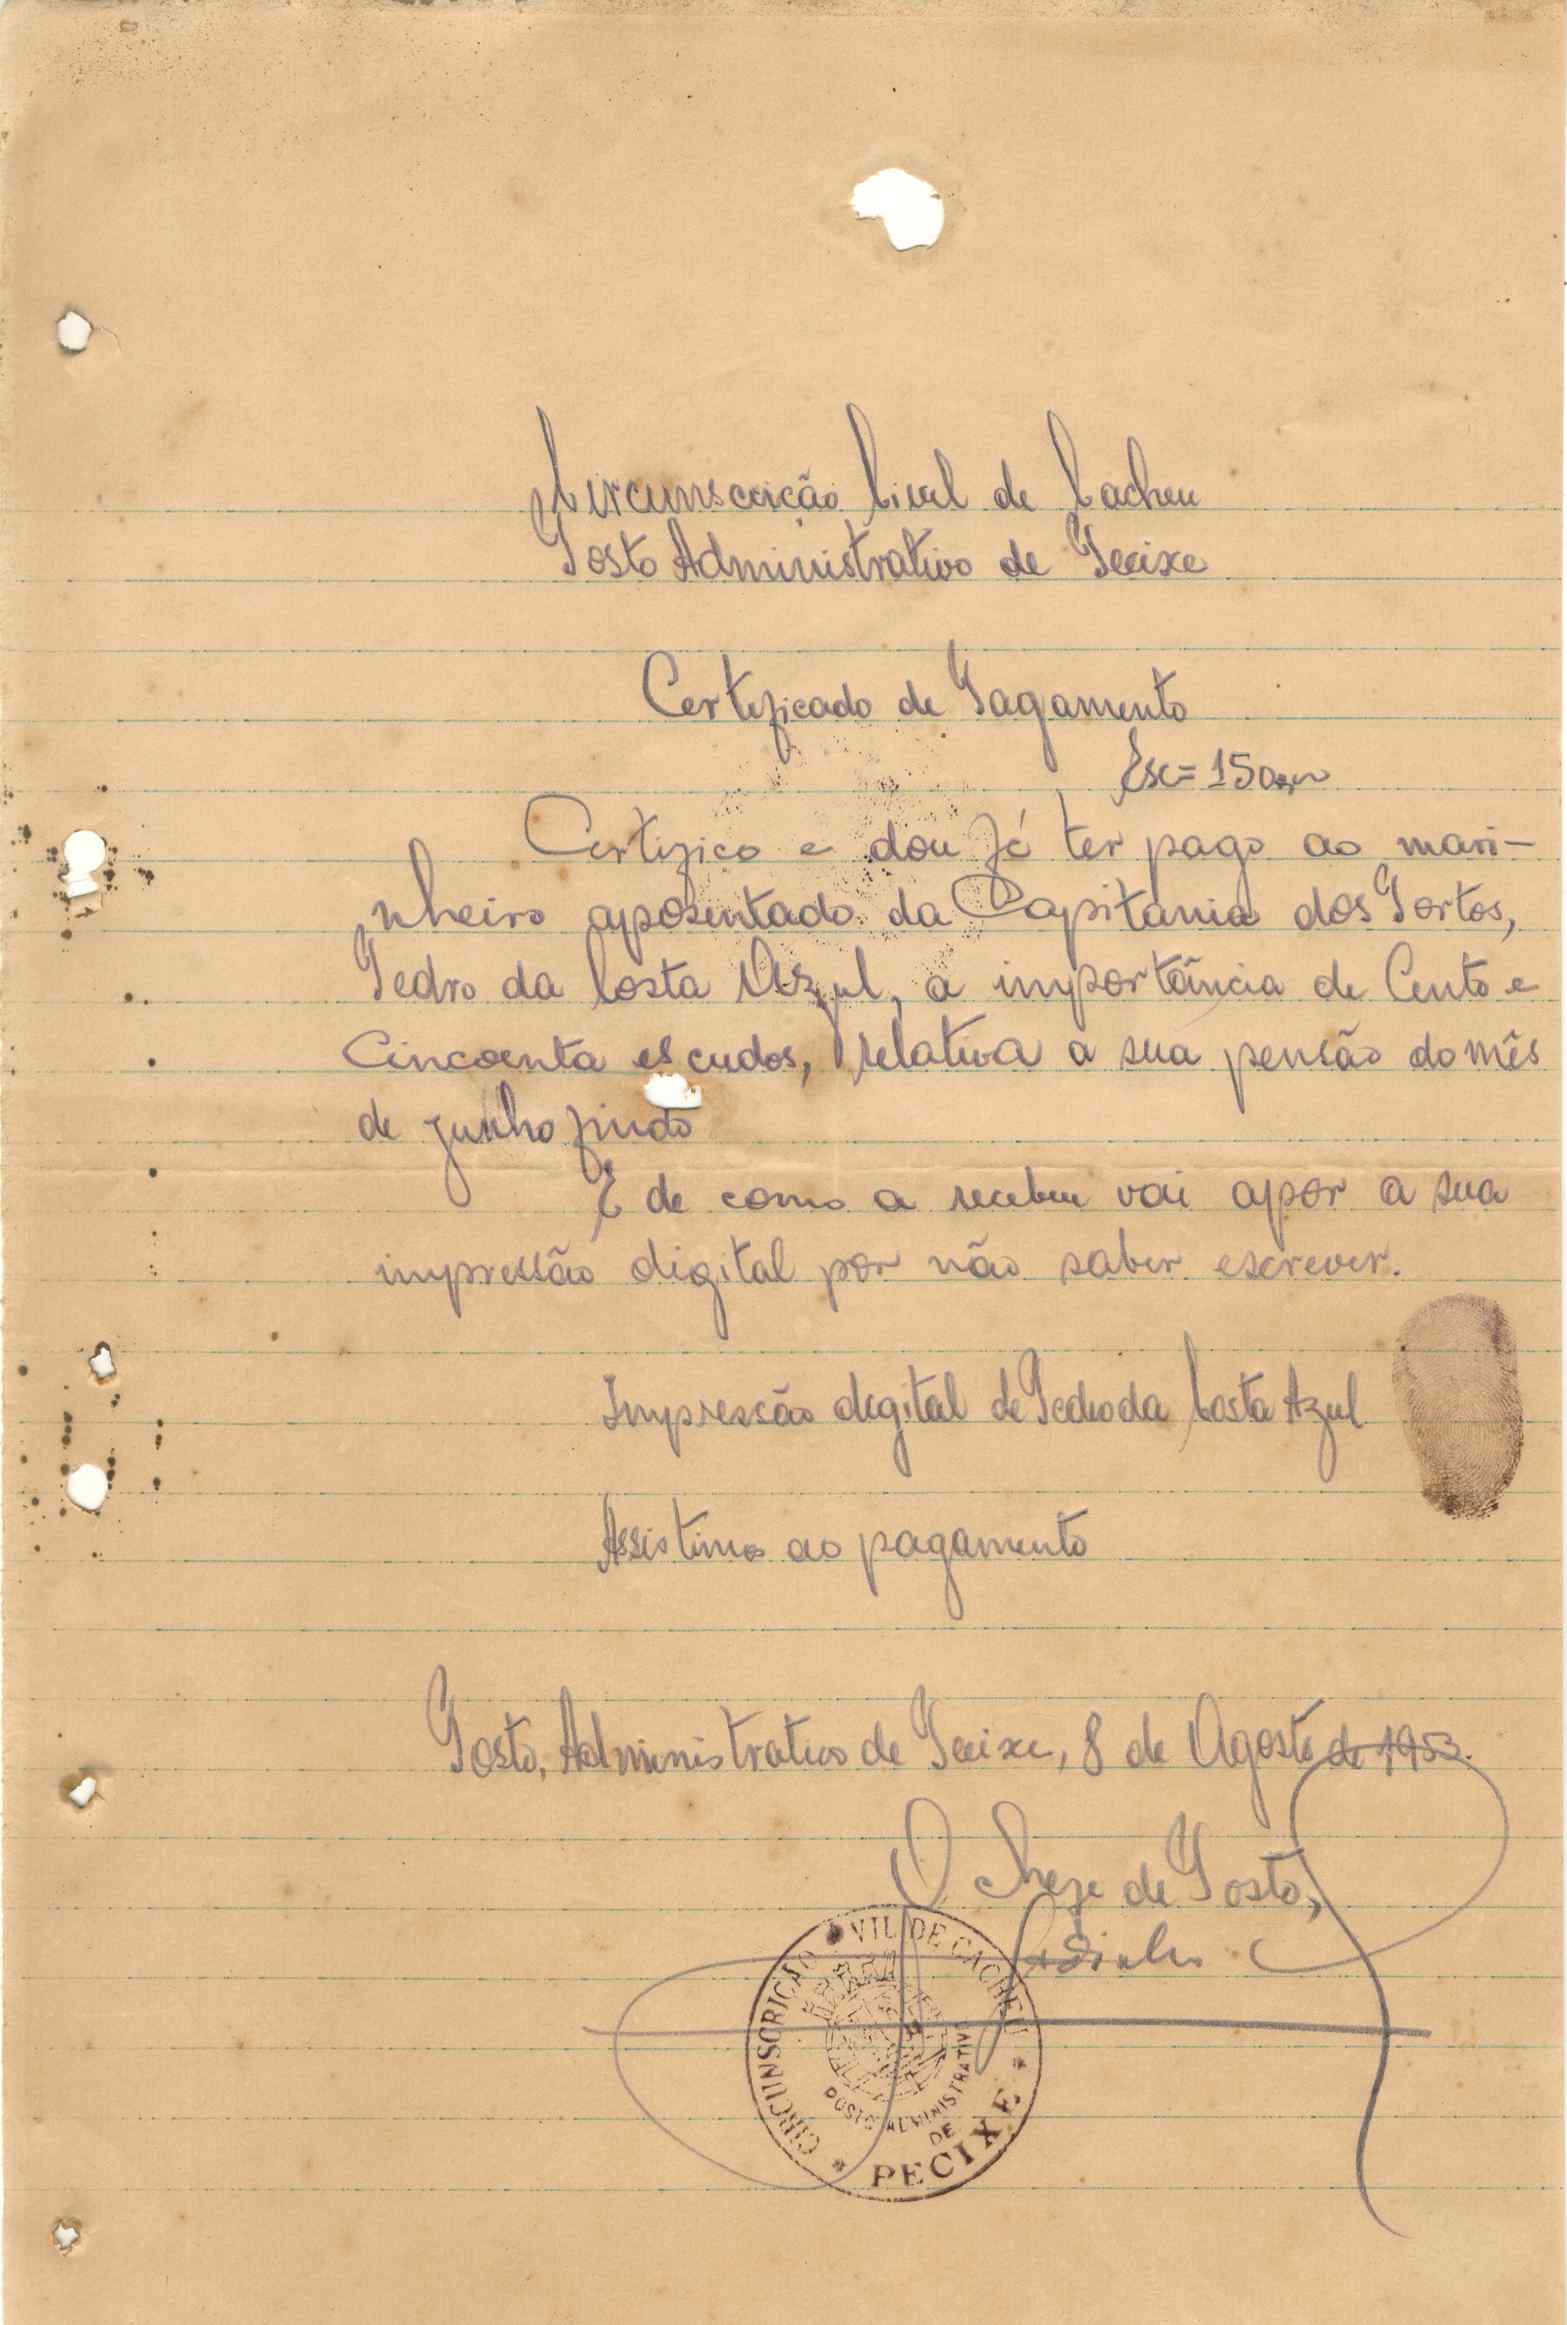 Circunscrição Civil de Cacheu
Posto Administrativo de Pecixe
Certificado de Pagamento
Esc= 150
Certifico e dou fé ter pago ao mari-
nheiro aposentado da Capitania dos Portos,
Pedro da Costa Azul, a importância de Cento e
Cincoenta escudos, relativa a sua pensão do mês
de junho findo
E de como a recebeu vai apor a sua
impressão digital por não saber escrever.
Impressão digital de Pedro da Costa Azul
Assistimos ao pagamento
Posto, Administrativo de Pecixe, 8 de Agosto de 1953.
O Chefe de Posto,
CIRCUNSCRIÇÃO CIVIL DE CACHEU
POSTO ADMINISTRATIVO
DE
PECIXE